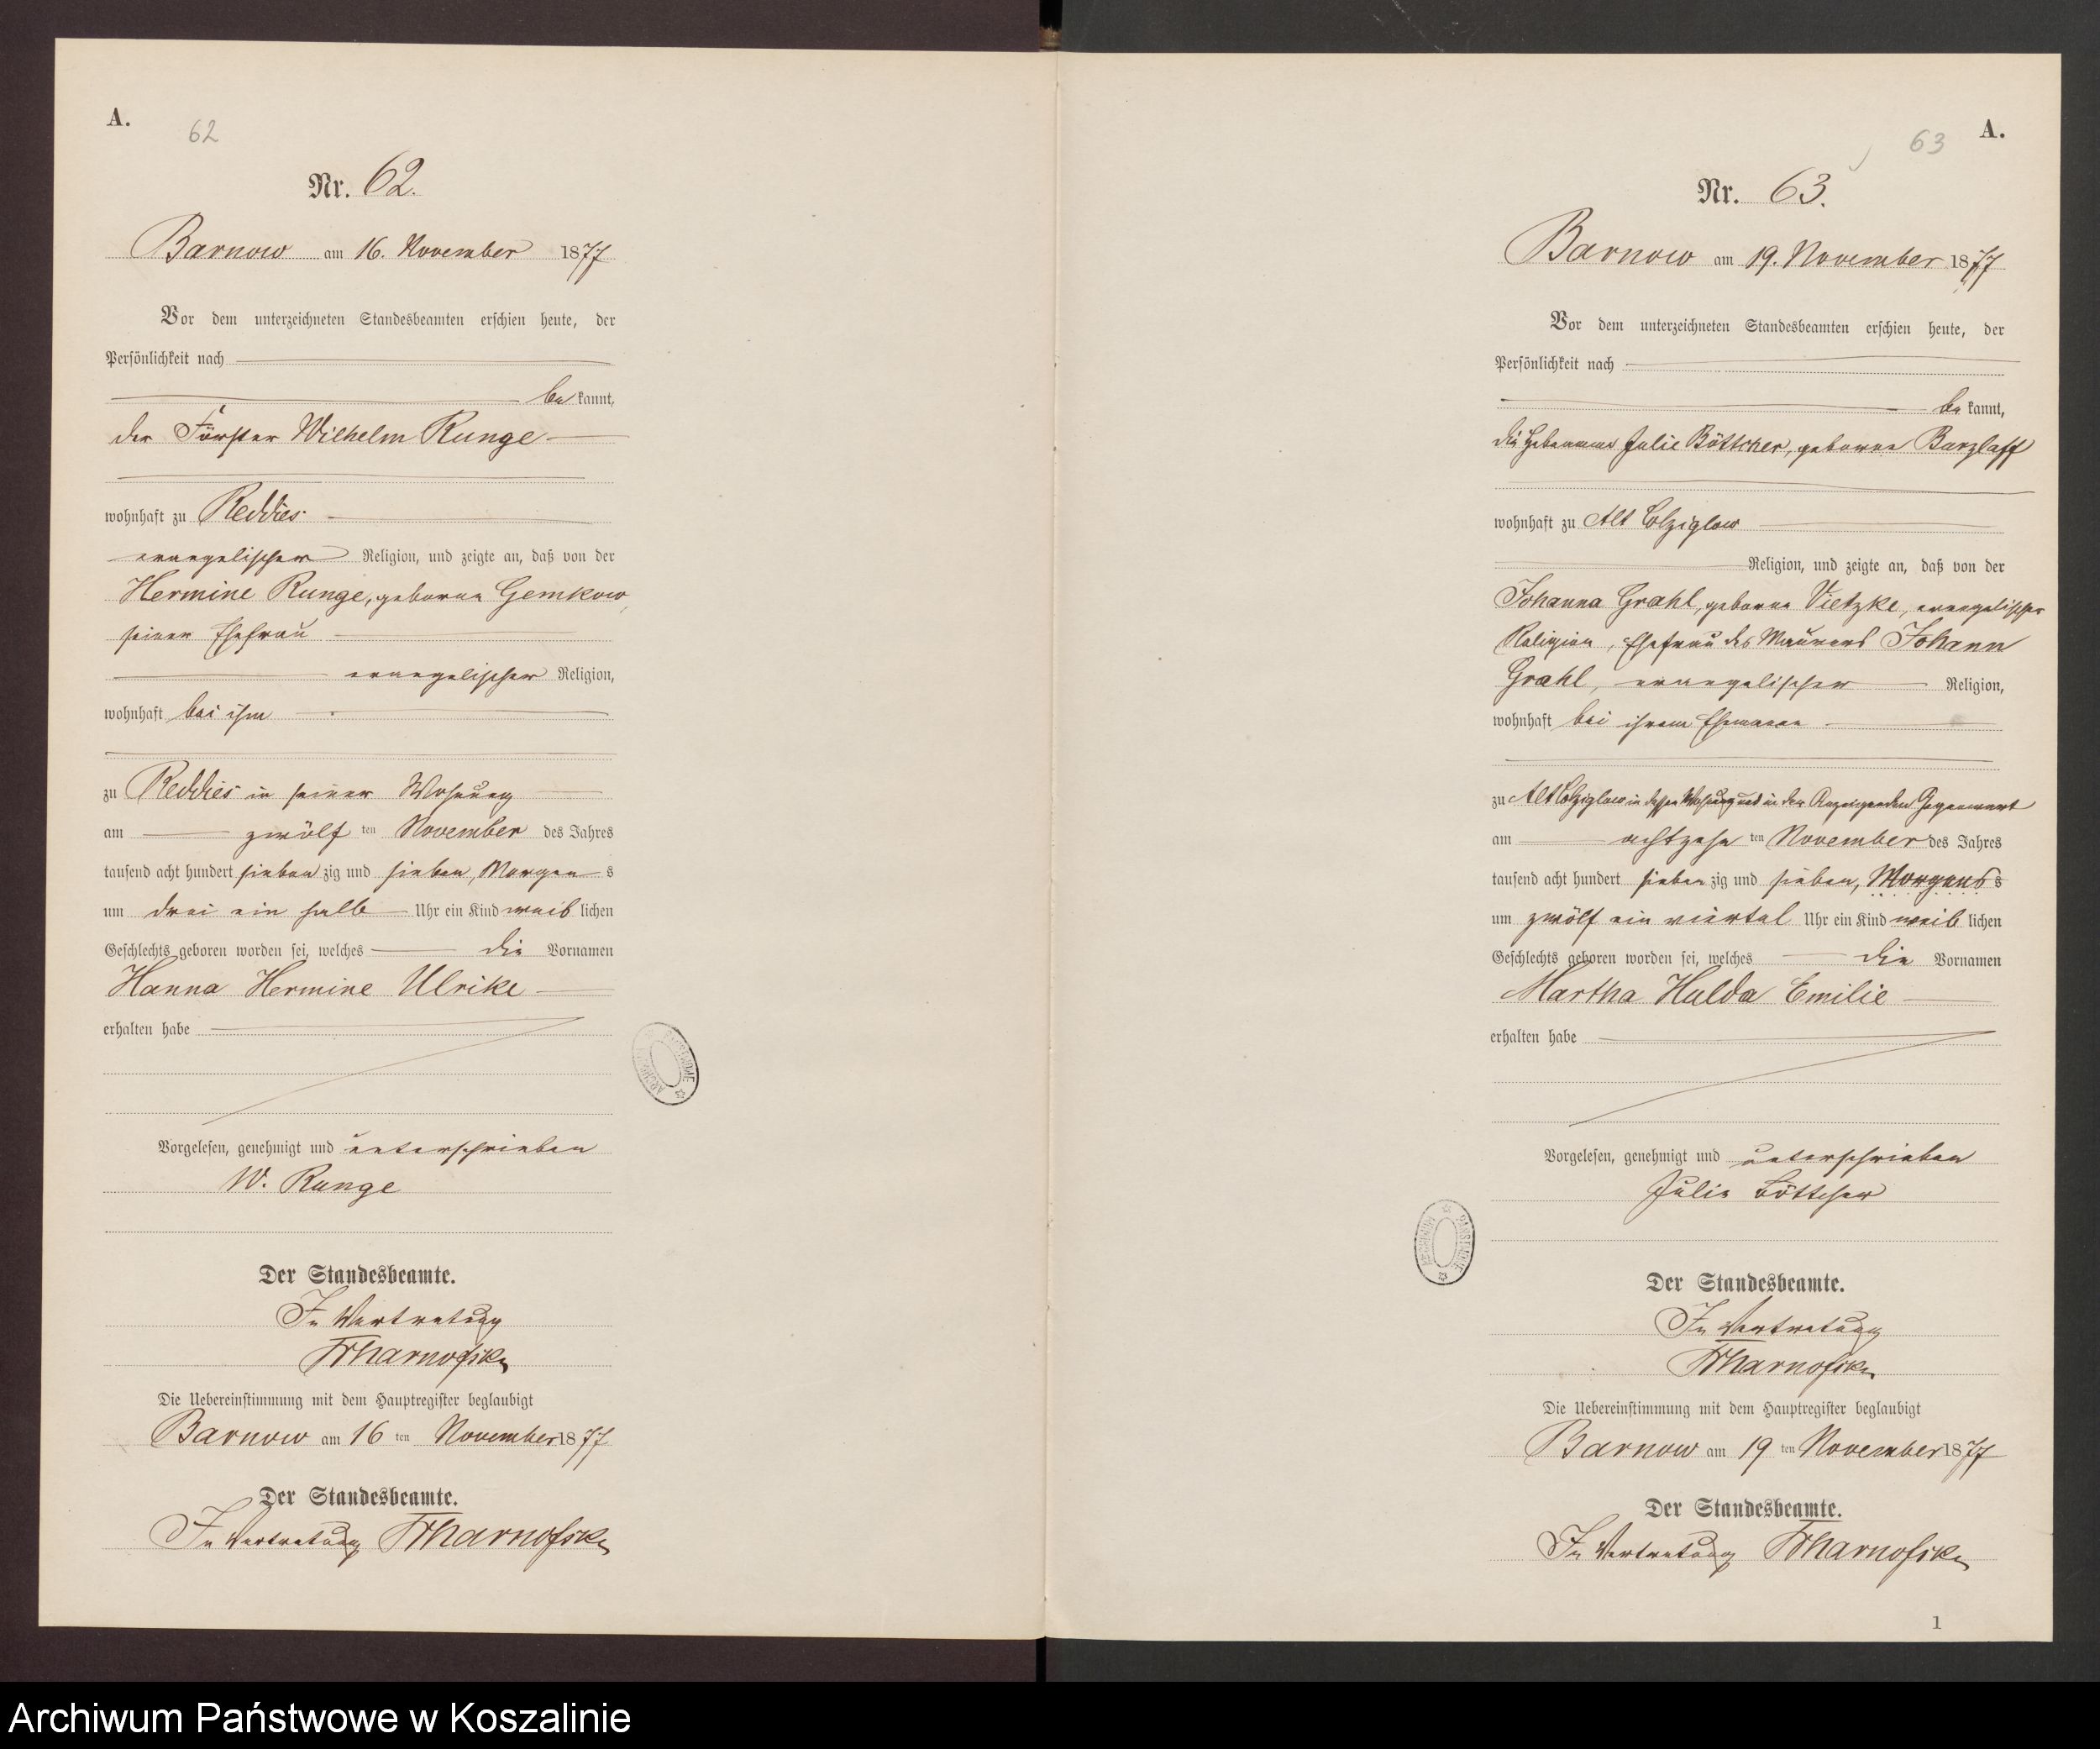 A.
62
Nr. 62.
Barnow am 16. November 1877
Vor dem unterzeichneten Standesbeamten erschien heute, der
Persönlichkeit nach
bekannt,
der Förster Wilhelm Runge
wohnhaft zu Reddies
evangelischer Religion, und zeigte an, daß von der
Hermine Runge, geborne Gemkow,
seiner Ehefrau
evangelischer Religion,
wohnhaft bei ihm
zu Reddies in seiner Wohnung
am zwölf ten November des Jahres
tausend acht hundert siebenzig und sieben, Morgens
um drei ein halb Uhr ein Kind weiblichen
Geschlechts geboren worden sei, welches die Vornamen
Hanna Hermine Ulrike
erhalten habe
Vorgelesen, genehmigt und unterschrieben
W. Runge
Der Standesbeamte.
In Vertretung
Die Uebereinstimmung mit dem Hauptregister beglaubigt
Barnow am 16 ten November 1877
Der Standesbeamte.
In Vertretung
ARCHIWUM PAŃSTWOWE
63
A.
Nr. 63.
Barnow am 19. November 1877
Vor dem unterzeichneten Standesbeamten erschien heute, der
Persönlichkeit nach
bekannt,
die Hebamme Julie Böttcher, geborne Barzlaff
wohnhaft zu Alt Colziglow
Religion, und zeigte an, daß von der
Johanna Grahl, geborne Vietzke, evangelischer
Religion, Ehefrau des Maurers Johann
Grahl, evangelischer Religion,
wohnhaft bei ihrem Ehemann
zu Alt Colziglow in dessen Wohnung und in der Anzeigenden Gegenwart
am achtzehn ten November des Jahres
tausend acht hundert siebenzig und sieben, Morgens s
um zwölf ein viertel Uhr ein Kind weiblichen
Geschlechts geboren worden sei, welches die Vornamen
Martha Hulda Emilie
erhalten habe
Vorgelesen, genehmigt und unterschrieben
Julie Böttcher
Der Standesbeamte.
In Vertretung
Die Uebereinstimmung mit dem Hauptregister beglaubigt
Barnow am 19 ten November 1877
Der Standesbeamte.
In Vertretung
ARCHIWUM PAŃSTWOWE
1
Archiwum Państwowe w Koszalinie